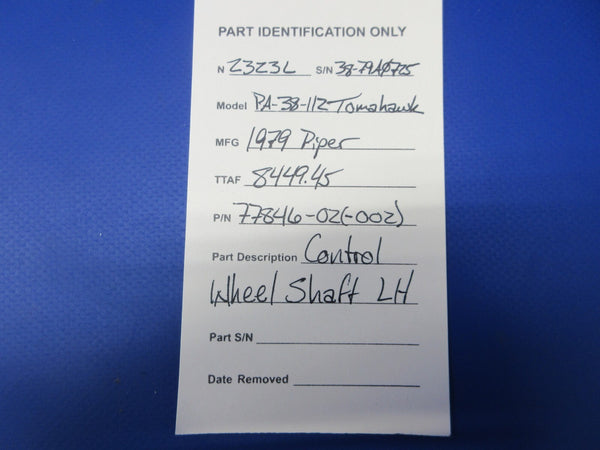 PART IDENTIFICATION ONLY
N 2323L S/N 38-79A0725
Model PA-38-112 Tomahawk
MFG 1979 Piper
TTAF 8449.45
P/N 77846-02(-002)
Part Description Control
Wheel Shaft LH
Part S/N
Date Removed